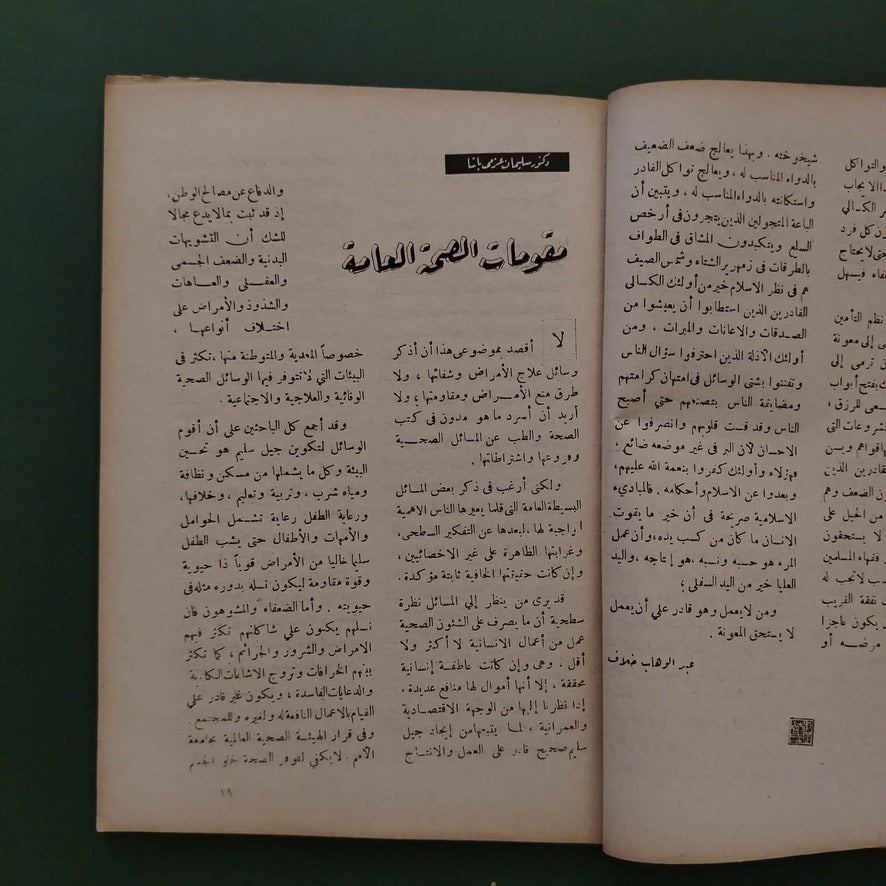 والتواكل
ر الكسالى
ون كل فرد
حتى لا يحتاج
نظم التأمين
ى إلى معونة
ن ترمى إلى
ك بفتح أبواب
عى للرزق ،
شروعات التى
قادرين الذين
ون الضعف وهم
من الحيل على
لا يستحقون
فقهاء المسلمين
لا تجب له
نفقة القريب
يكون عاجزا
مرضه أو
شيخوخته . وبهذا يعالج ضعف الضعيف
بالدواء المناسب له ، ويعالج تواكل القادر
واستكانته بالدواء المناسب له ، ويتبين أن
الباعة المتجولين الذين يتجرون فى أرخص
السلع ويتكبدون المشاق فى الطواف
بالطرقات فى زمهرير الشتاء وشمس الصيف
هم فى نظر الاسلام خير من أولئك الكسالى
القادرين الذين استطابوا أن يعيشوا من
الصدقات والاعانات والمبرات ، ومن
أولئك الأذلة الذين احترفوا سؤال الناس
وتفننوا بشتى الوسائل فى امتهان كرامتهم
ومضايقة الناس بتصنعهم حتى أصبح
الناس وقد قست قلوبهم وانصرفوا عن
الاحسان لأن البر فى غير موضعه ضائع ،
فهؤلاء وأولئك كفروا بنعمة الله عليهم ،
وبعدوا عن الاسلام وأحكامه . فالمبادىء
الاسلامية صريحة فى أن خير ما يقوت
الانسان ما كان من كسب يده ، وأن عمل
المرء هو حسبه ونسبه ، هو إنتاجه ، واليد
العليا خير من اليد السفلى ؛
ومن لا يعمل وهو قادر على أن يعمل
لا يستحق المعونة .
عبد الوهاب خلاف
دكتور سليمان عزمى باشا
مقومات الصحة العامة
لا أقصد بموضوعى هذا أن أذكر
وسائل علاج الأمراض وشفائها ، ولا
طرق منع الأمراض ومقاومتها ، ولا
أريد أن أسرد ما هو مدون فى كتب
الصحة والطب عن المسائل الصحية
وفروعها واشتراطاتها .
ولكنى أرغب فى ذكر بعض المسائل
البسيطة العامة التى قلما يعيرها الناس الاهمية
الواجبة لها ، لبعدها عن التفكير السطحى ،
وغرابتها الظاهرة على غير الاخصائيين ،
وإن كانت حقيقتها الخافية ثابتة مؤكدة .
قد يرى من ينظر إلى المسائل نظرة
سطحية أن ما يصرف على الشئون الصحية
عمل من أعمال الانسانية لا أكثر ولا
أقل . وهى وإن كانت عاطفة إنسانية
محققة ، إلا أنها أموال لها منافع عديدة .
إذا نظرنا إليها من الوجهة الاقتصادية
والعمرانية ، لما يتبعها من إيجاد جيل
سليم صحيح قادر على العمل والانتاج
والدفاع عن مصالح الوطن ،
إذ قد ثبت بما لا يدع مجالا
للشك أن التشويهات
البدنية والضعف الجسمى
والعقلى والعاهات
والشذوذ والأمراض على
اختلاف أنواعها ،
خصوصاً المعدية والمتوطنة منها ، تكثر فى
البيئات التى لا تتوفر فيها الوسائل الصحية
الوقائية والعلاجية والاجتماعية .
وقد أجمع كل الباحثين على أن أقوم
الوسائل لتكوين جيل سليم هو تحسين
البيئة وكل ما يشملها من مسكن ونظافة
ومياه شرب ، وتربية وتعليم ، وخلافها ،
ورعاية الطفل رعاية تشمل الحوامل
والأمهات والأطفال حتى يشب الطفل
سليما خاليا من الأمراض قوياً ذا حيوية
وقوة مقاومة ليكون نسله بدوره مثله فى
حيويته . وأما الضعفاء والمشوهون فان
نسلهم يكون على شاكلتهم تكثر فيهم
الامراض والشرور والجرائم ، كما تكثر
بينهم الخرافات وتروج الاشاعات الكاذبة
والدعايات الفاسدة ، ويكون غير قادر على
القيام بالاعمال النافعة له ولغيره وللمجتمع .
وفى قرار الهيئة الصحية العالمية بجامعة
الأمم . لا يكفى لتوفر الصحة خلو الجسم
١٩